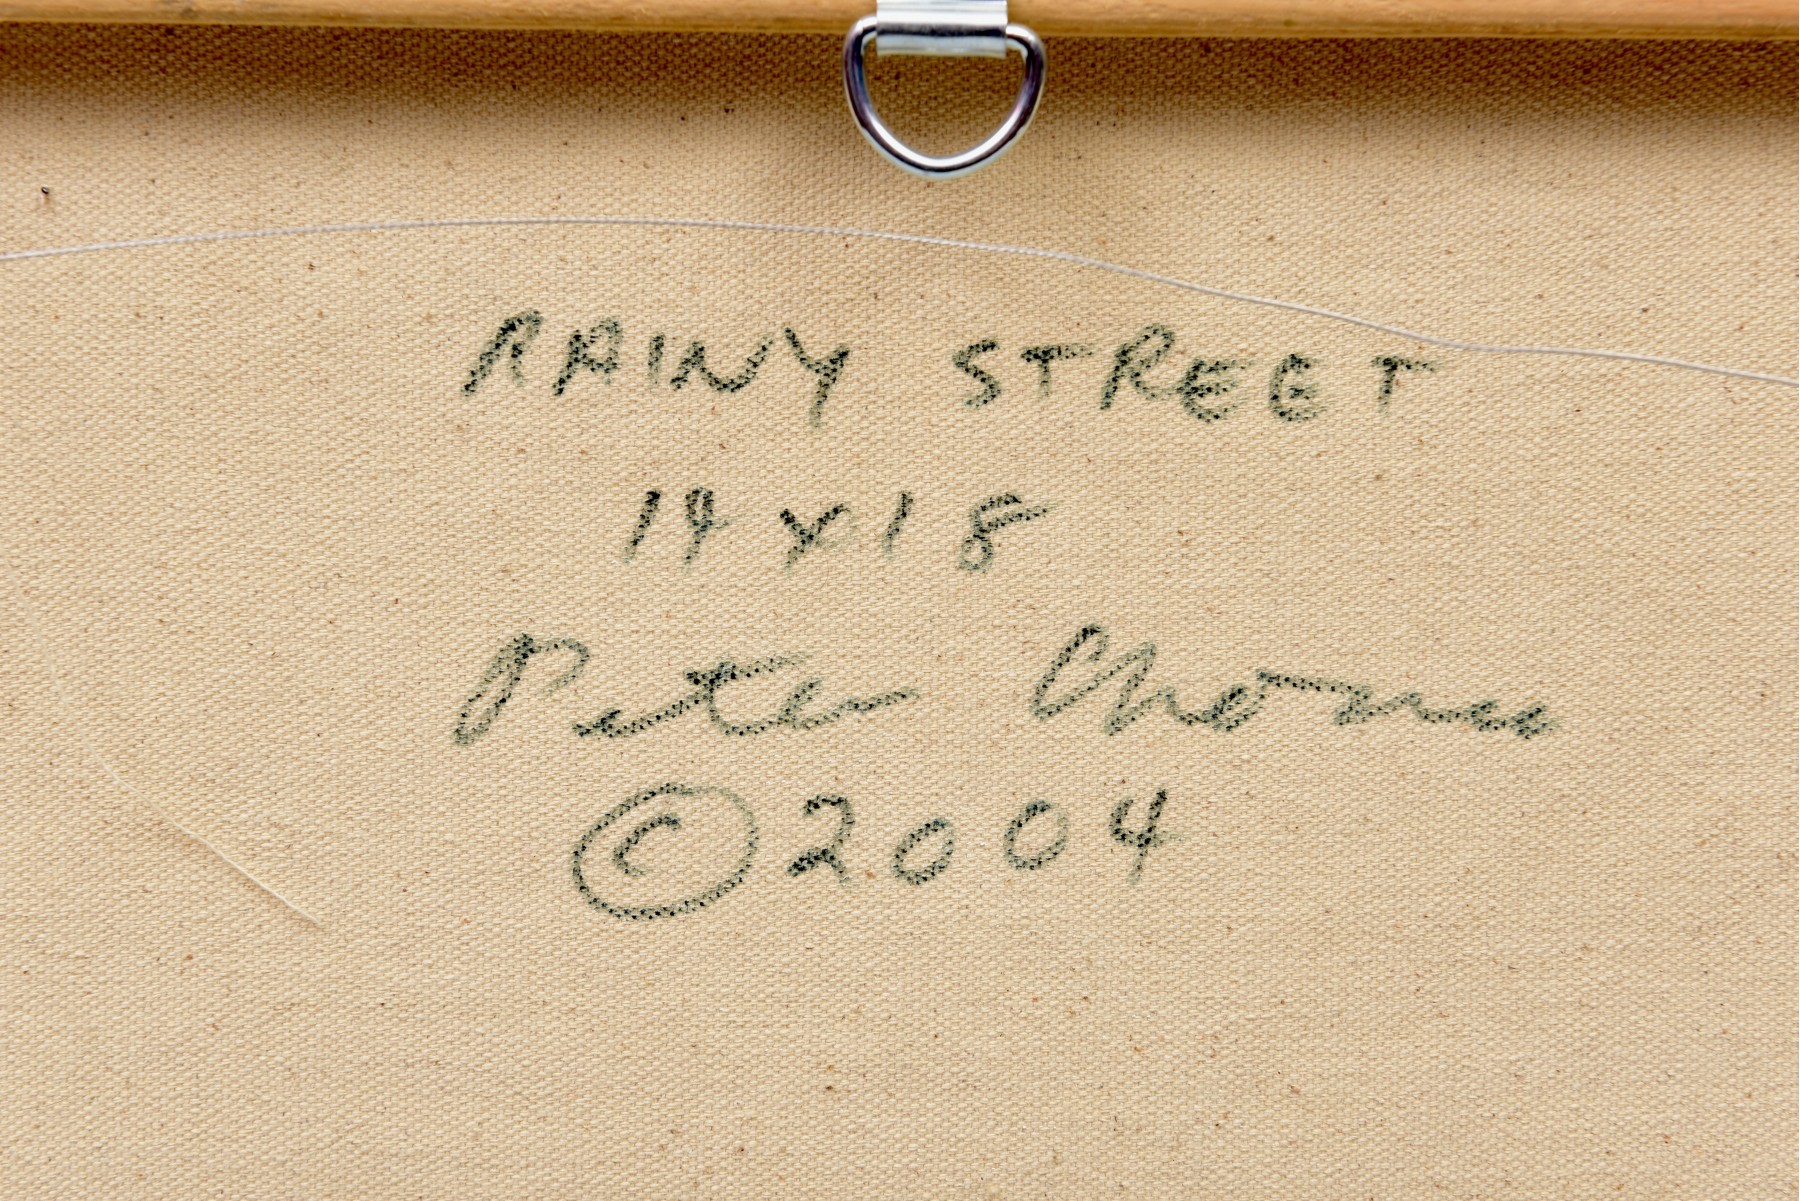 RAINY STREET
14x18
Peter
© 2004